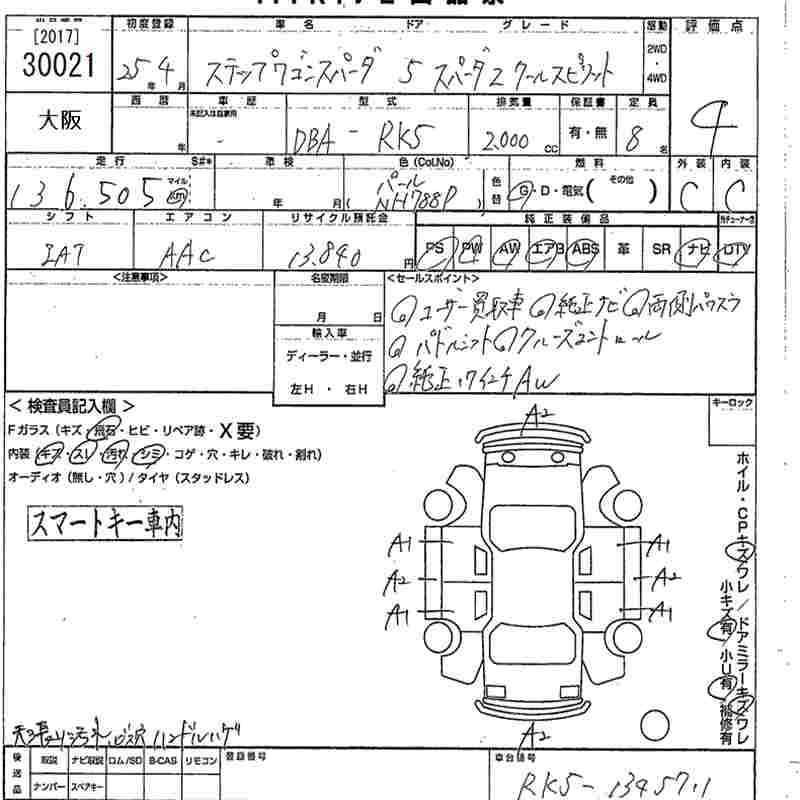 [2017]
30021
初度登録 車名 ドア グレード 駆動 評価点
25年4月 ステップワゴンスパーダ 5 スパーダZクールスピリット 2WD・4WD
4
大阪
西暦 車歴 型式 排気量 保証書 定員
未記入は自家用
年 - DBA-RK5 2,000 CC 有・無 8名
走行 S#* 車検 色(Col.No) 燃料 外装 内装
136,505 マイル km 年 月 パール NH788P 色替 G・D・電気( その他 ) C C
シフト エアコン リサイクル預託金 純正装備品
IAT AAC 13,840円 PS PW AW エアB ABS 革 SR ナビ DTV
<注意事項> 名変期限 <セールスポイント>
月 日
輸入車
ディーラー・並行
左H・右H
ユーザー買取車 純正ナビ 両側パワスラ
パドルシフト クルーズコントロール
純正17インチAW
<検査員記入欄>
Fガラス(キズ・飛石・ヒビ・リペア跡・X要)
内装(キズ・スレ・汚れ・シミ・コゲ・穴・キレ・破れ・割れ)
オーディオ(無し・穴)/タイヤ(スタッドレス)
スマートキー車内
キーロック
A2
A1 A1
A2 A2
A1 A1
A2
ホイル・CPキズワレ/ドアミラーキズワレ
小キズ有/小U有・補修有
ビス穴 ハンドルハゲ
後送品 取説 ナビ取説 ロム/SD B-CAS リモコン 登録番号 車台番号
ナンバー スペアキー
RK5-1345711